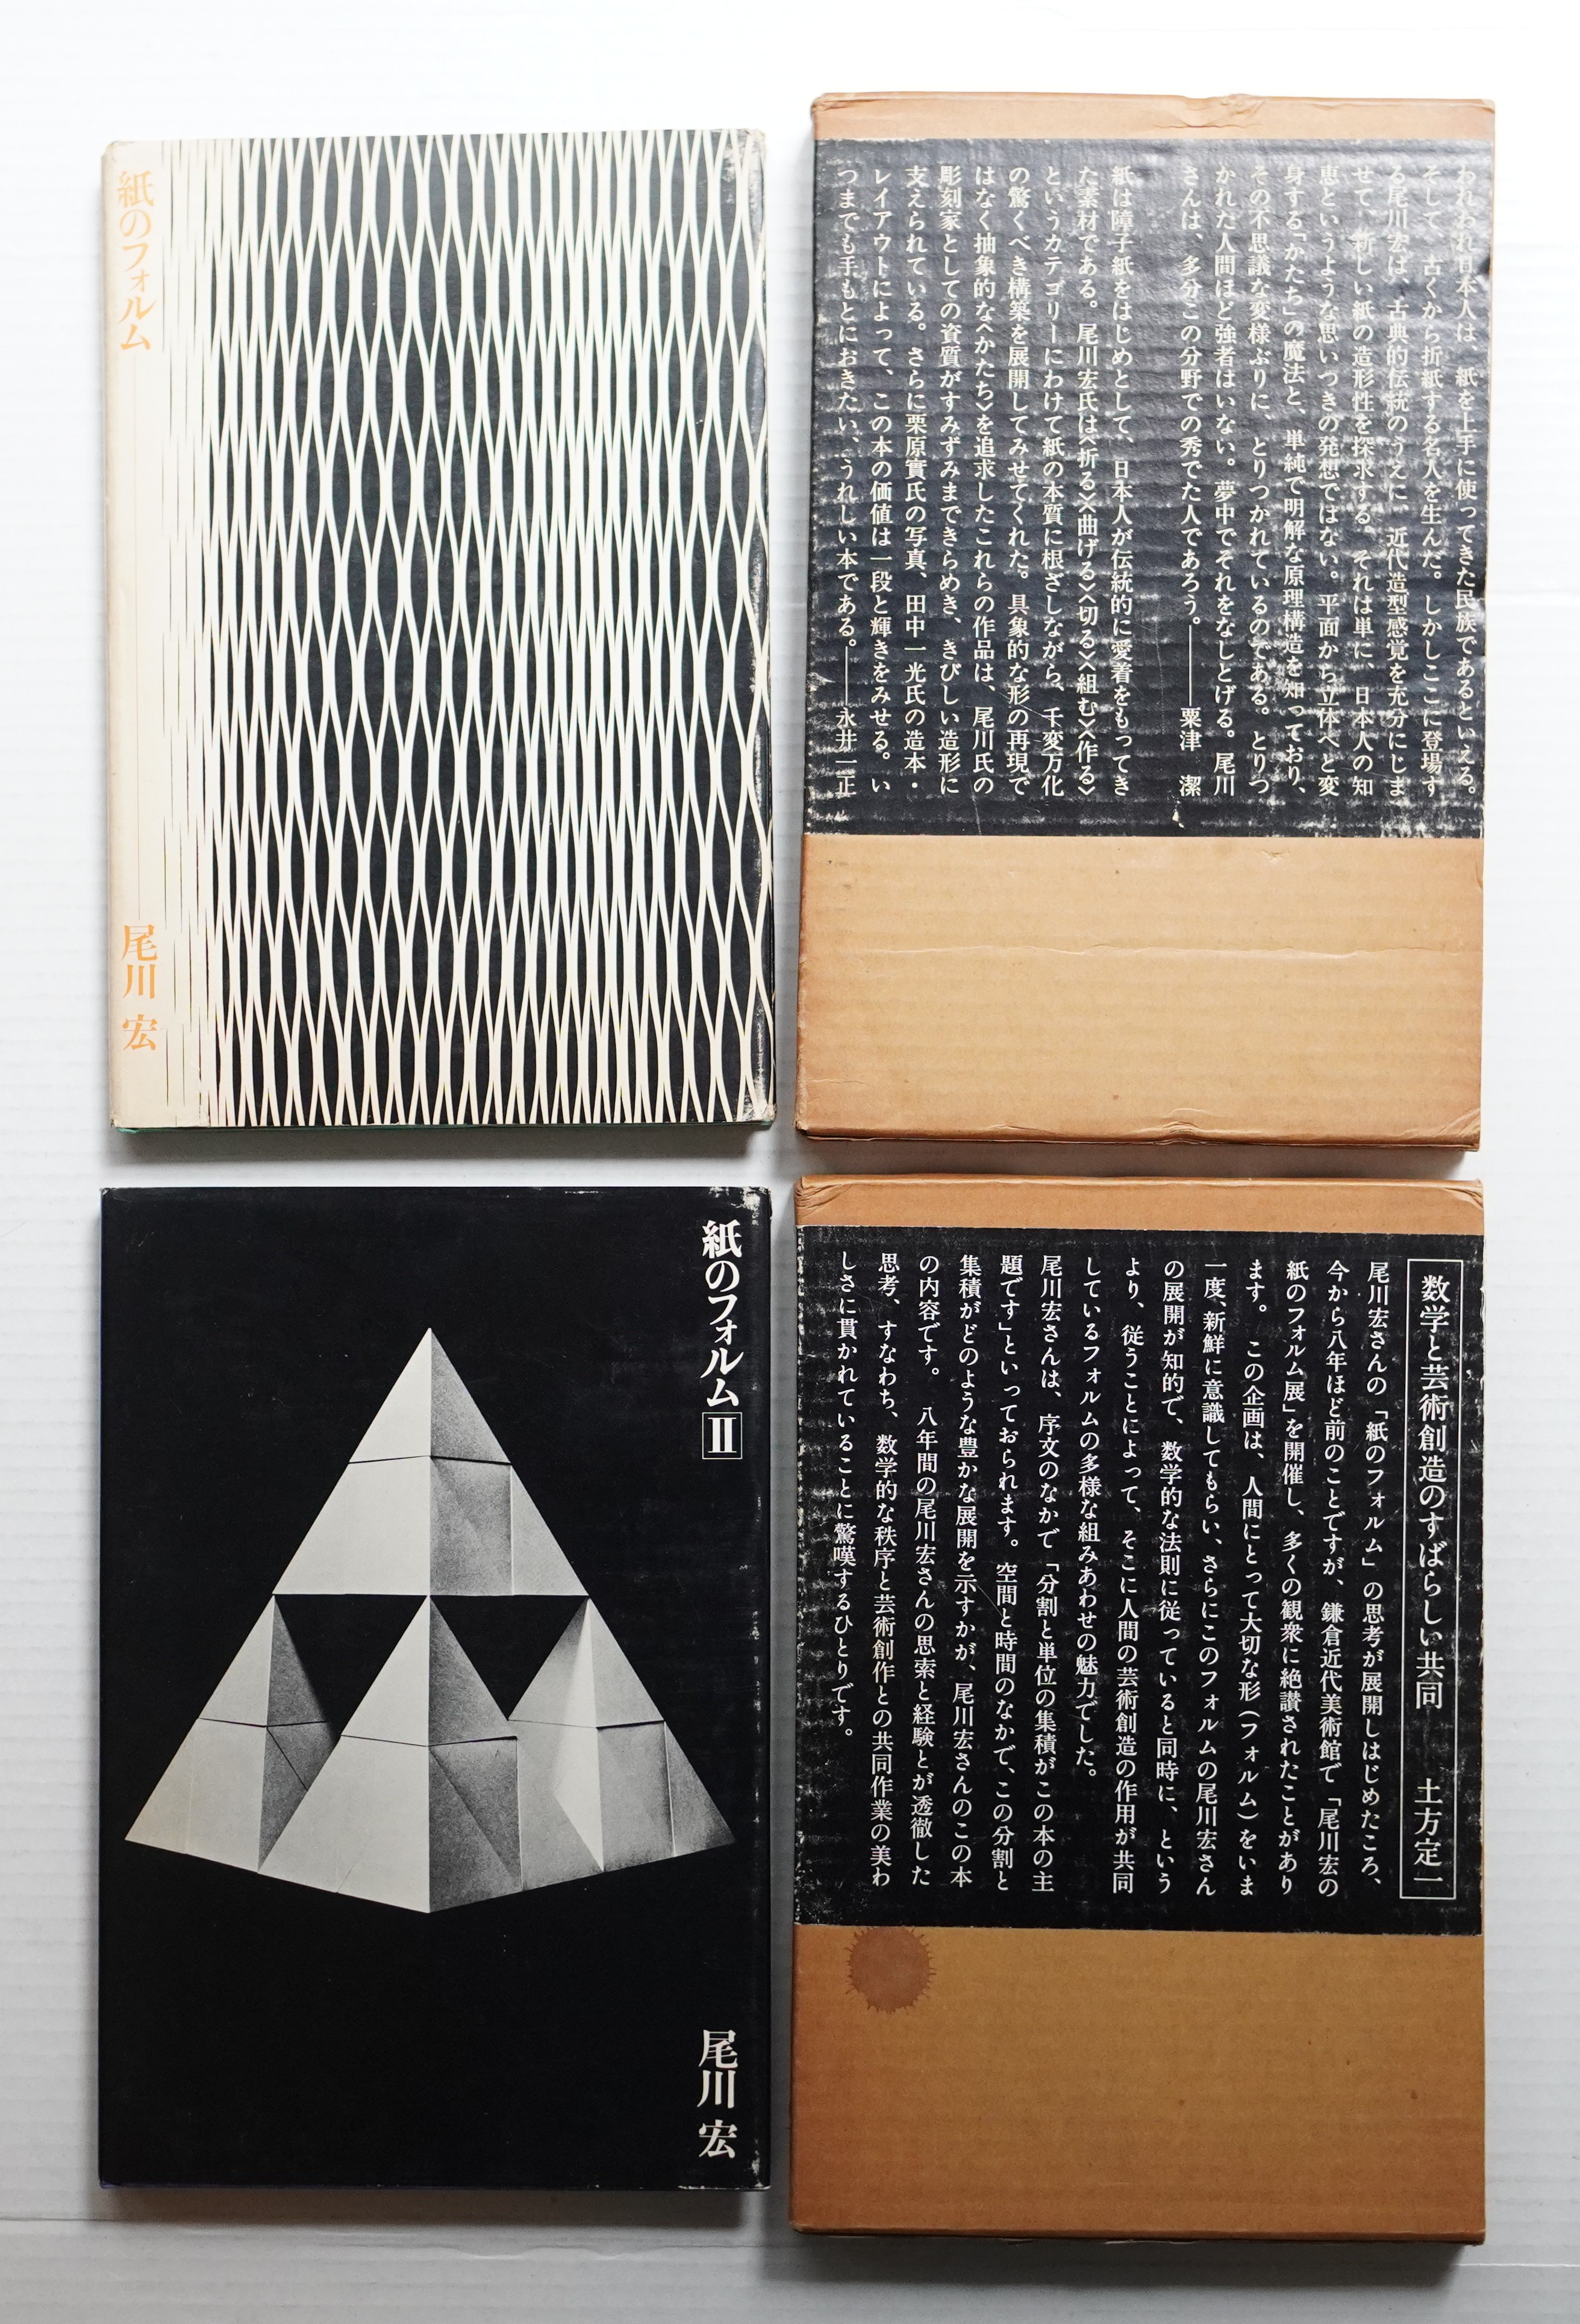 紙のフォルム
尾川 宏
われわれ日本人は、紙を上手に使ってきた民族であるといえる。
そして、古くから折紙する名人を生んだ。しかしここに登場す
る尾川宏は、古典的伝統のうえに、近代造型感覚を充分にしま
せて、新しい紙の造形性を探求する。それは単に、日本人の知
恵というような思いつきの発想ではない。平面から立体へと変
身する「かたち」の魔法と、単純で明解な原理構造を知っており、
その不思議な変様ぶりに、とりつかれているのである。とりつ
かれた人間ほど強者はいない。夢中でそれをなしとげる。尾川
さんは、多分この分野での秀でた人であろう。——粟津 潔
紙は障子紙をはじめとして、日本人が伝統的に愛着をもってき
た素材である。尾川宏氏は〈折る〉〈曲げる〉〈切る〉〈組む〉〈作る〉
というカテゴリーにわけて紙の本質に根ざしながら、千変万化
の驚くべき構築を展開してみせてくれた。具象的な形の再現で
はなく抽象的な〈かたち〉を追求したこれらの作品は、尾川氏の
彫刻家としての資質がすみずみまできらめき、きびしい造形に
支えられている。さらに栗原實氏の写真、田中一光氏の造本・
レイアウトによって、この本の価値は一段と輝きをみせる。い
つまでも手もとにおきたい、うれしい本である。——永井一正
紙のフォルムII
尾川 宏
数学と芸術創造のすばらしい共同 土方定一
尾川宏さんの「紙のフォルム」の思考が展開しはじめたころ、
今から八年ほど前のことですが、鎌倉近代美術館で「尾川宏の
紙のフォルム展」を開催し、多くの観衆に絶讃されたことがあり
ます。この企画は、人間にとって大切な形(フォルム)をいま
一度、新鮮に意識してもらい、さらにこのフォルムの尾川宏さん
の展開が知的で、数学的な法則に従っていると同時に、という
より、従うことによって、そこに人間の芸術創造の作用が共同
しているフォルムの多様な組みあわせの魅力でした。
尾川宏さんは、序文のなかで「分割と単位の集積がこの本の主
題です」といっておられます。空間と時間のなかで、この分割と
集積がどのような豊かな展開を示すかが、尾川宏さんのこの本
の内容です。八年間の尾川宏さんの思索と経験とが透徹した
思考、すなわち、数学的な秩序と芸術創作との共同作業の美わ
しさに貫かれていることに驚嘆するひとりです。